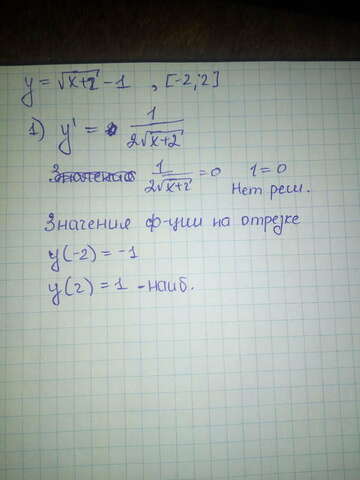 y = √x+2 - 1 , [-2; 2]
1) y' = 1/(2√x+2)
1/(2√x+2) = 0 1 = 0
Нет реш.
Значения ф-ции на отрезке
y(-2) = -1
y(2) = 1 - наиб.